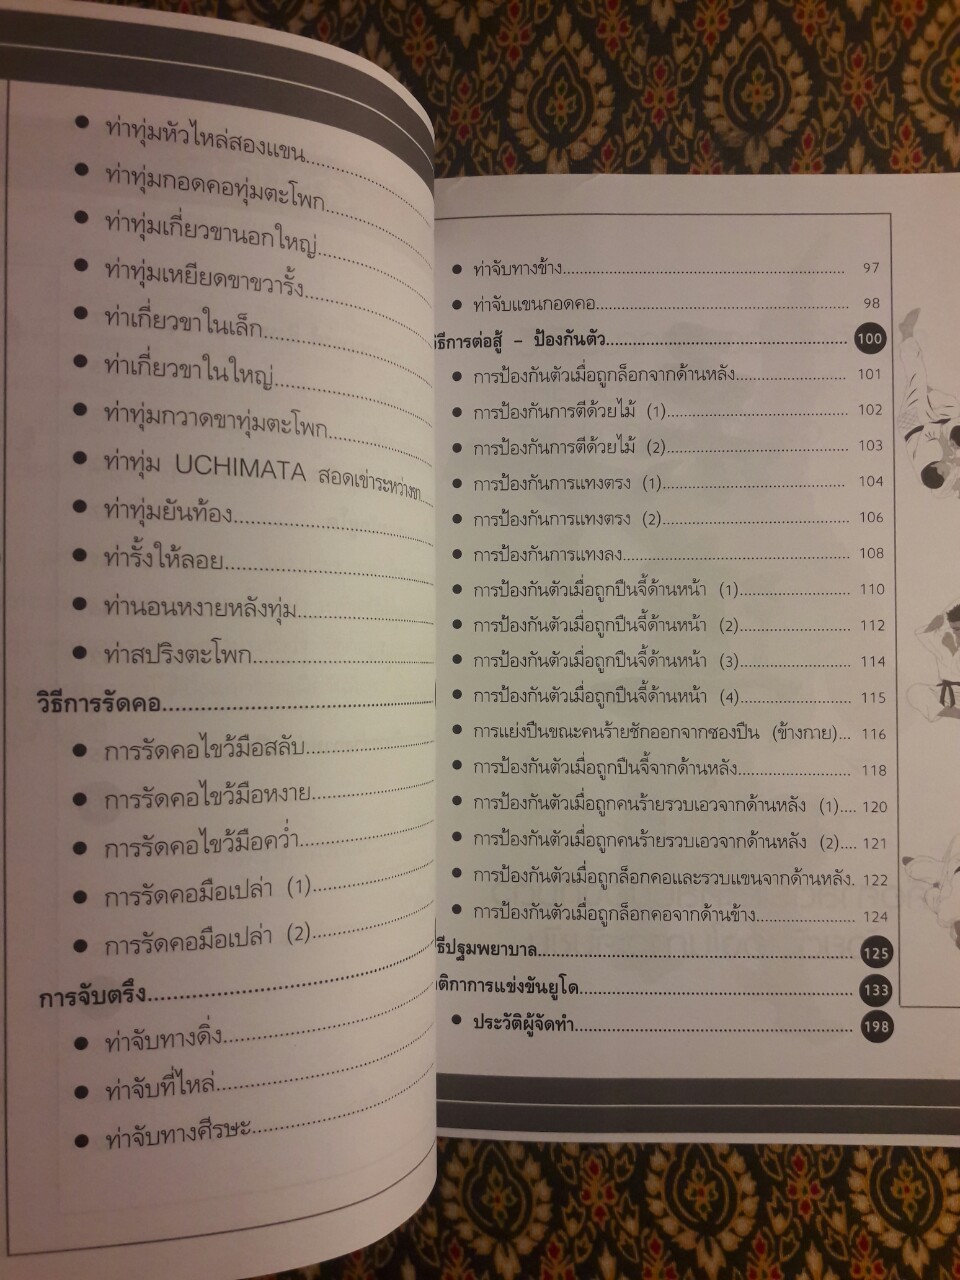 ● ท่าทุ่มหัวไหล่สองแขน
● ท่าทุ่มกอดคอทุ่มตะโพก
● ท่าทุ่มเกี่ยวขานอกใหญ่
● ท่าทุ่มเหยียดขาขวารั้ง
● ท่าเกี่ยวขาในเล็ก
● ท่าเกี่ยวขาในใหญ่
● ท่าทุ่มกวาดขาทุ่มตะโพก
● ท่าทุ่ม UCHIMATA สอดเข่าระหว่างขา
● ท่าทุ่มยันท้อง
● ท่ารั้งให้ลอย
● ท่านอนหงายหลังทุ่ม
● ท่าสปริงตะโพก
วิธีการรัดคอ
● การรัดคอไขว้มือสลับ
● การรัดคอไขว้มือหงาย
● การรัดคอไขว้มือคว่ำ
● การรัดคอมือเปล่า (1)
● การรัดคอมือเปล่า (2)
การจับตรึง
● ท่าจับทางดิ่ง
● ท่าจับที่ไหล่
● ท่าจับทางศีรษะ
● ท่าจับทางข้าง 97
● ท่าจับแขนกอดคอ 98
วิธีการต่อสู้ - ป้องกันตัว 100
● การป้องกันตัวเมื่อถูกล็อกจากด้านหลัง 101
● การป้องกันการตีด้วยไม้ (1) 102
● การป้องกันการตีด้วยไม้ (2) 103
● การป้องกันการแทงตรง (1) 104
● การป้องกันการแทงตรง (2) 106
● การป้องกันการแทงลง 108
● การป้องกันตัวเมื่อถูกปืนจี้ด้านหน้า (1) 110
● การป้องกันตัวเมื่อถูกปืนจี้ด้านหน้า (2) 112
● การป้องกันตัวเมื่อถูกปืนจี้ด้านหน้า (3) 114
● การป้องกันตัวเมื่อถูกปืนจี้ด้านหน้า (4) 115
● การแย่งปืนขณะคนร้ายชักออกจากซองปืน (ข้างกาย) 116
● การป้องกันตัวเมื่อถูกปืนจี้จากด้านหลัง 118
● การป้องกันตัวเมื่อถูกคนร้ายรวบเอวจากด้านหลัง (1) 120
● การป้องกันตัวเมื่อถูกคนร้ายรวบเอวจากด้านหลัง (2) 121
● การป้องกันตัวเมื่อถูกล็อกคอและรวบแขนจากด้านหลัง 122
● การป้องกันตัวเมื่อถูกล็อกคอจากด้านข้าง 124
ธีปฐมพยาบาล 125
ติกาการแข่งขันยูโด 133
● ประวัติผู้จัดทำ 198